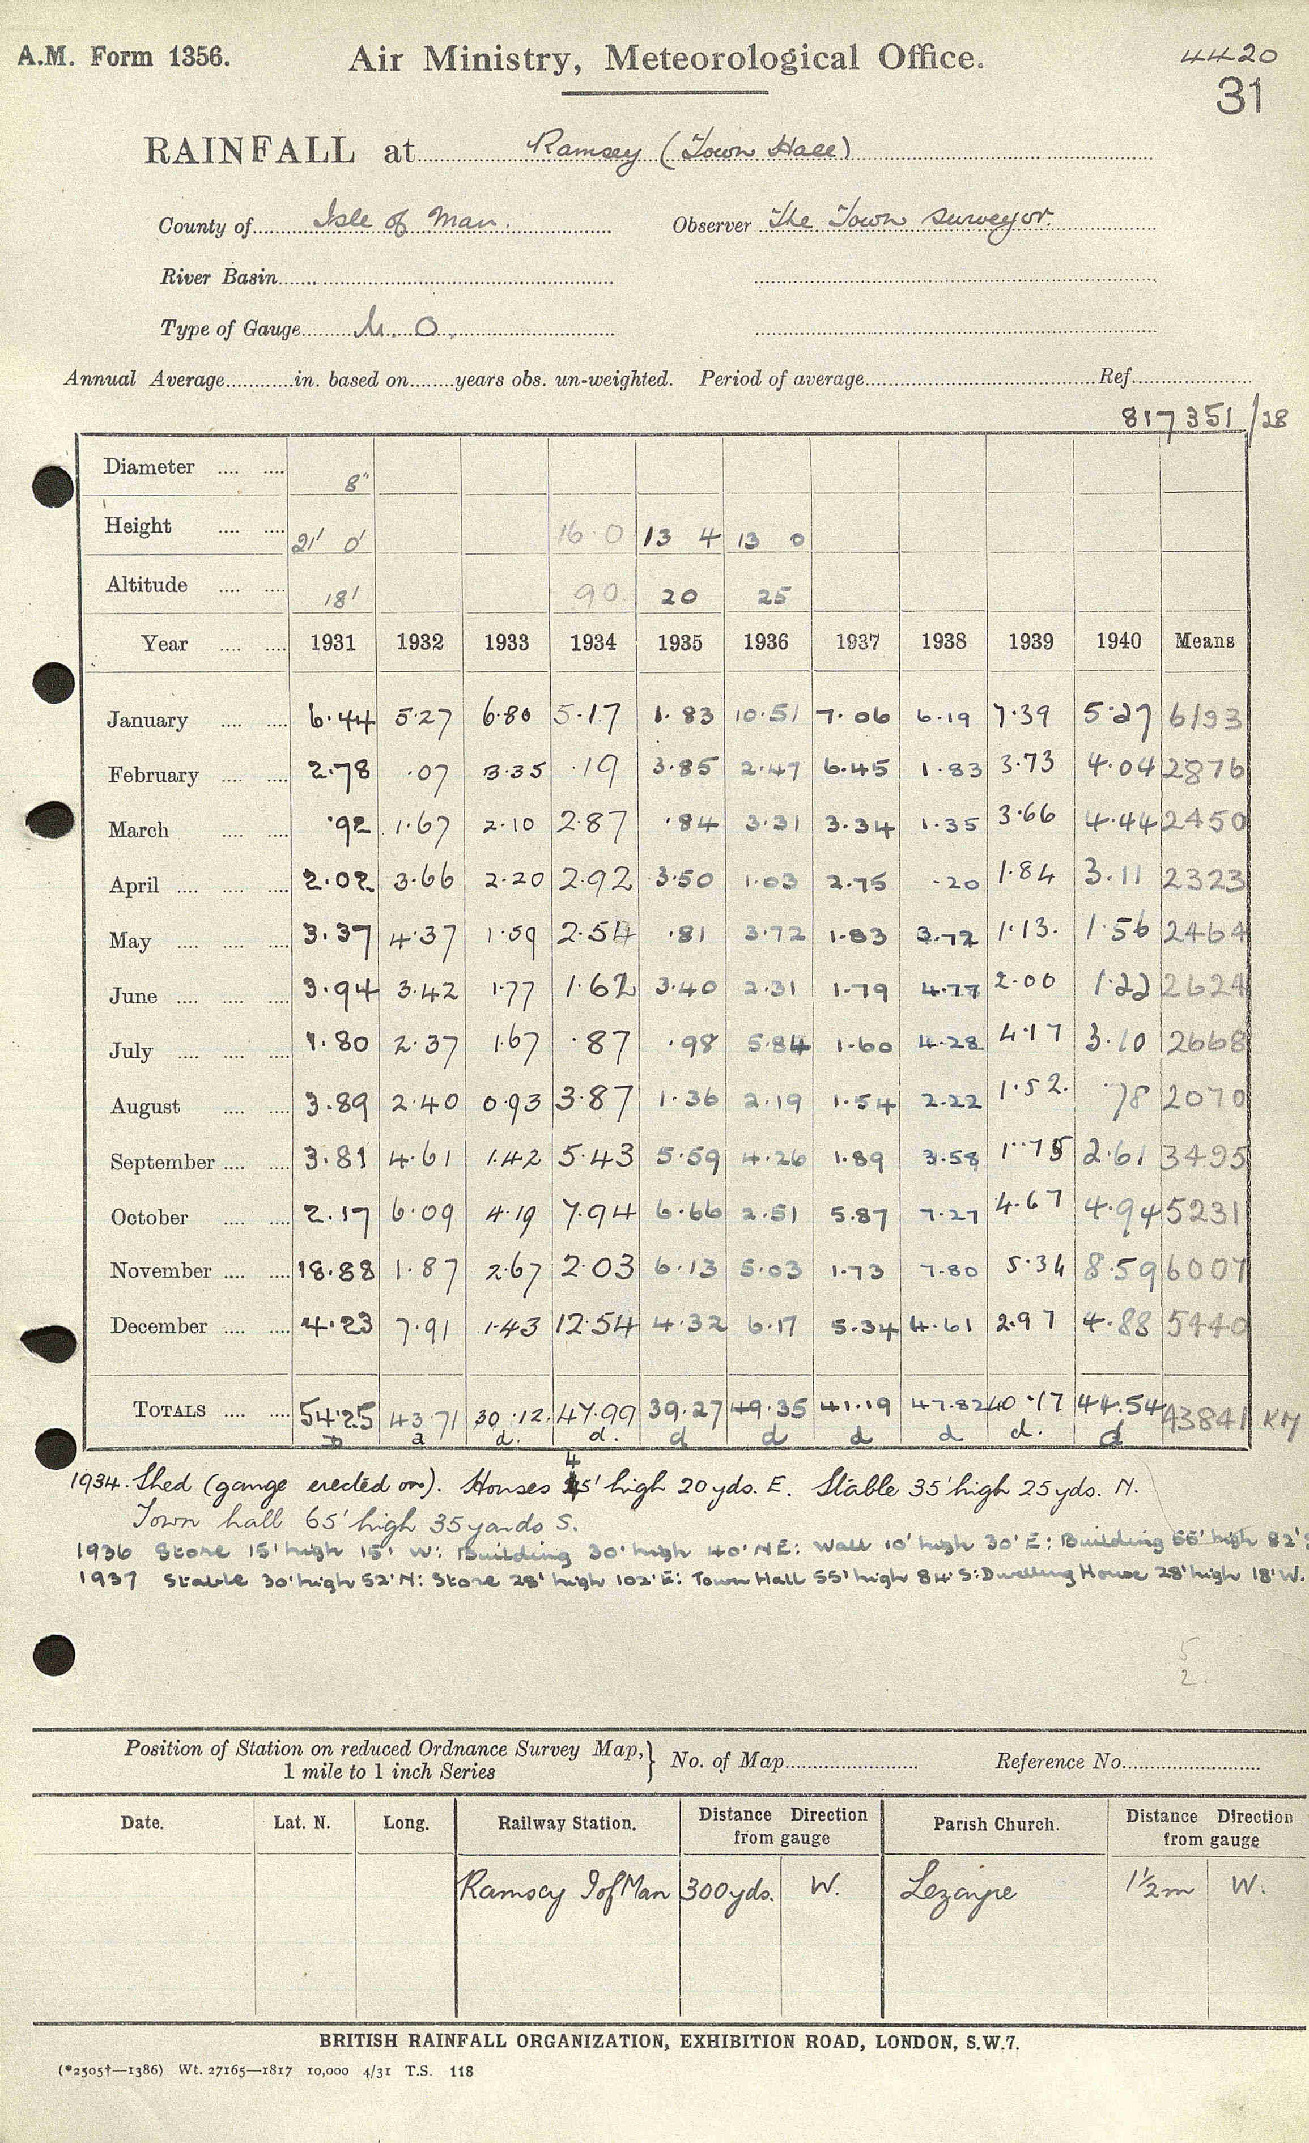 A.M. Form 1356.
Air Ministry, Meteorological Office.
4420
31
RAINFALL at Ramsey (Town Hall)
County of Isle of Man. Observer The Town Surveyor.
River Basin
Type of Gauge M. O.
Annual Average in. based on years obs. un-weighted. Period of average Ref
817351/28
Diameter 8"
Height 21' 0' 16 0 13 4 13 0
Altitude 18' 90 20 25
Year 1931 1932 1933 1934 1935 1936 1937 1938 1939 1940 Means
January 6.44 5.27 6.80 5.17 1.83 10.51 7.06 6.19 7.39 5.27 6193
February 2.78 .07 3.35 .19 3.85 2.47 6.45 1.83 3.73 4.04 2876
March .92 1.67 2.10 2.87 .84 3.31 3.34 1.35 3.66 4.44 2450
April 2.02 3.66 2.20 2.92 3.50 1.03 2.75 .20 1.84 3.11 2323
May 3.37 4.37 1.59 2.54 .81 3.72 1.83 3.72 1.13. 1.56 2464
June 3.94 3.42 1.77 1.62 3.40 2.31 1.79 4.77 2.00 1.22 2624
July 1.80 2.37 1.67 .87 .98 5.84 1.60 4.28 4.17 3.10 2668
August 3.89 2.40 0.93 3.87 1.36 2.19 1.54 2.22 1.52. .78 2070
September 3.81 4.61 1.42 5.43 5.59 4.26 1.89 3.58 1.75 2.61 3495
October 2.17 6.09 4.19 7.94 6.66 2.51 5.87 7.27 4.67 4.94 5231
November 18.88 1.87 2.67 2.03 6.13 5.03 1.73 7.80 5.34 8.59 6007
December 4.23 7.91 1.43 12.54 4.32 6.17 5.34 4.61 2.97 4.88 5440
TOTALS 54.25 43 71 30.12. 47.99 39.27 49.35 41.19 47.82 40.17 44.54 43841 KM
a d. d. d d d d d. d
1934. Shed (gauge erected on). Houses 45' high 20 yds. E. Stable 35' high 25 yds. N.
Town hall 65' high 35 yards S.
1936 Store 15' high 15' W: Building 30' high 40' NE: Wall 10' high 30' E: Building 55' high 82' S
1937 Stable 30' high 52' N: Store 28' high 102' E: Town Hall 55' high 84' S: Dwelling House 28' high 18' W.
5
2.
Position of Station on reduced Ordnance Survey Map, } No. of Map Reference No.
1 mile to 1 inch Series
Date. Lat. N. Long. Railway Station. Distance Direction from gauge Parish Church. Distance Direction from gauge
Ramsey I of Man 300 yds. W. Lezayre 1½ m W.
BRITISH RAINFALL ORGANIZATION, EXHIBITION ROAD, LONDON, S.W.7.
(*2505†—1386) Wt. 27165—1817 10,000 4/31 T.S. 118